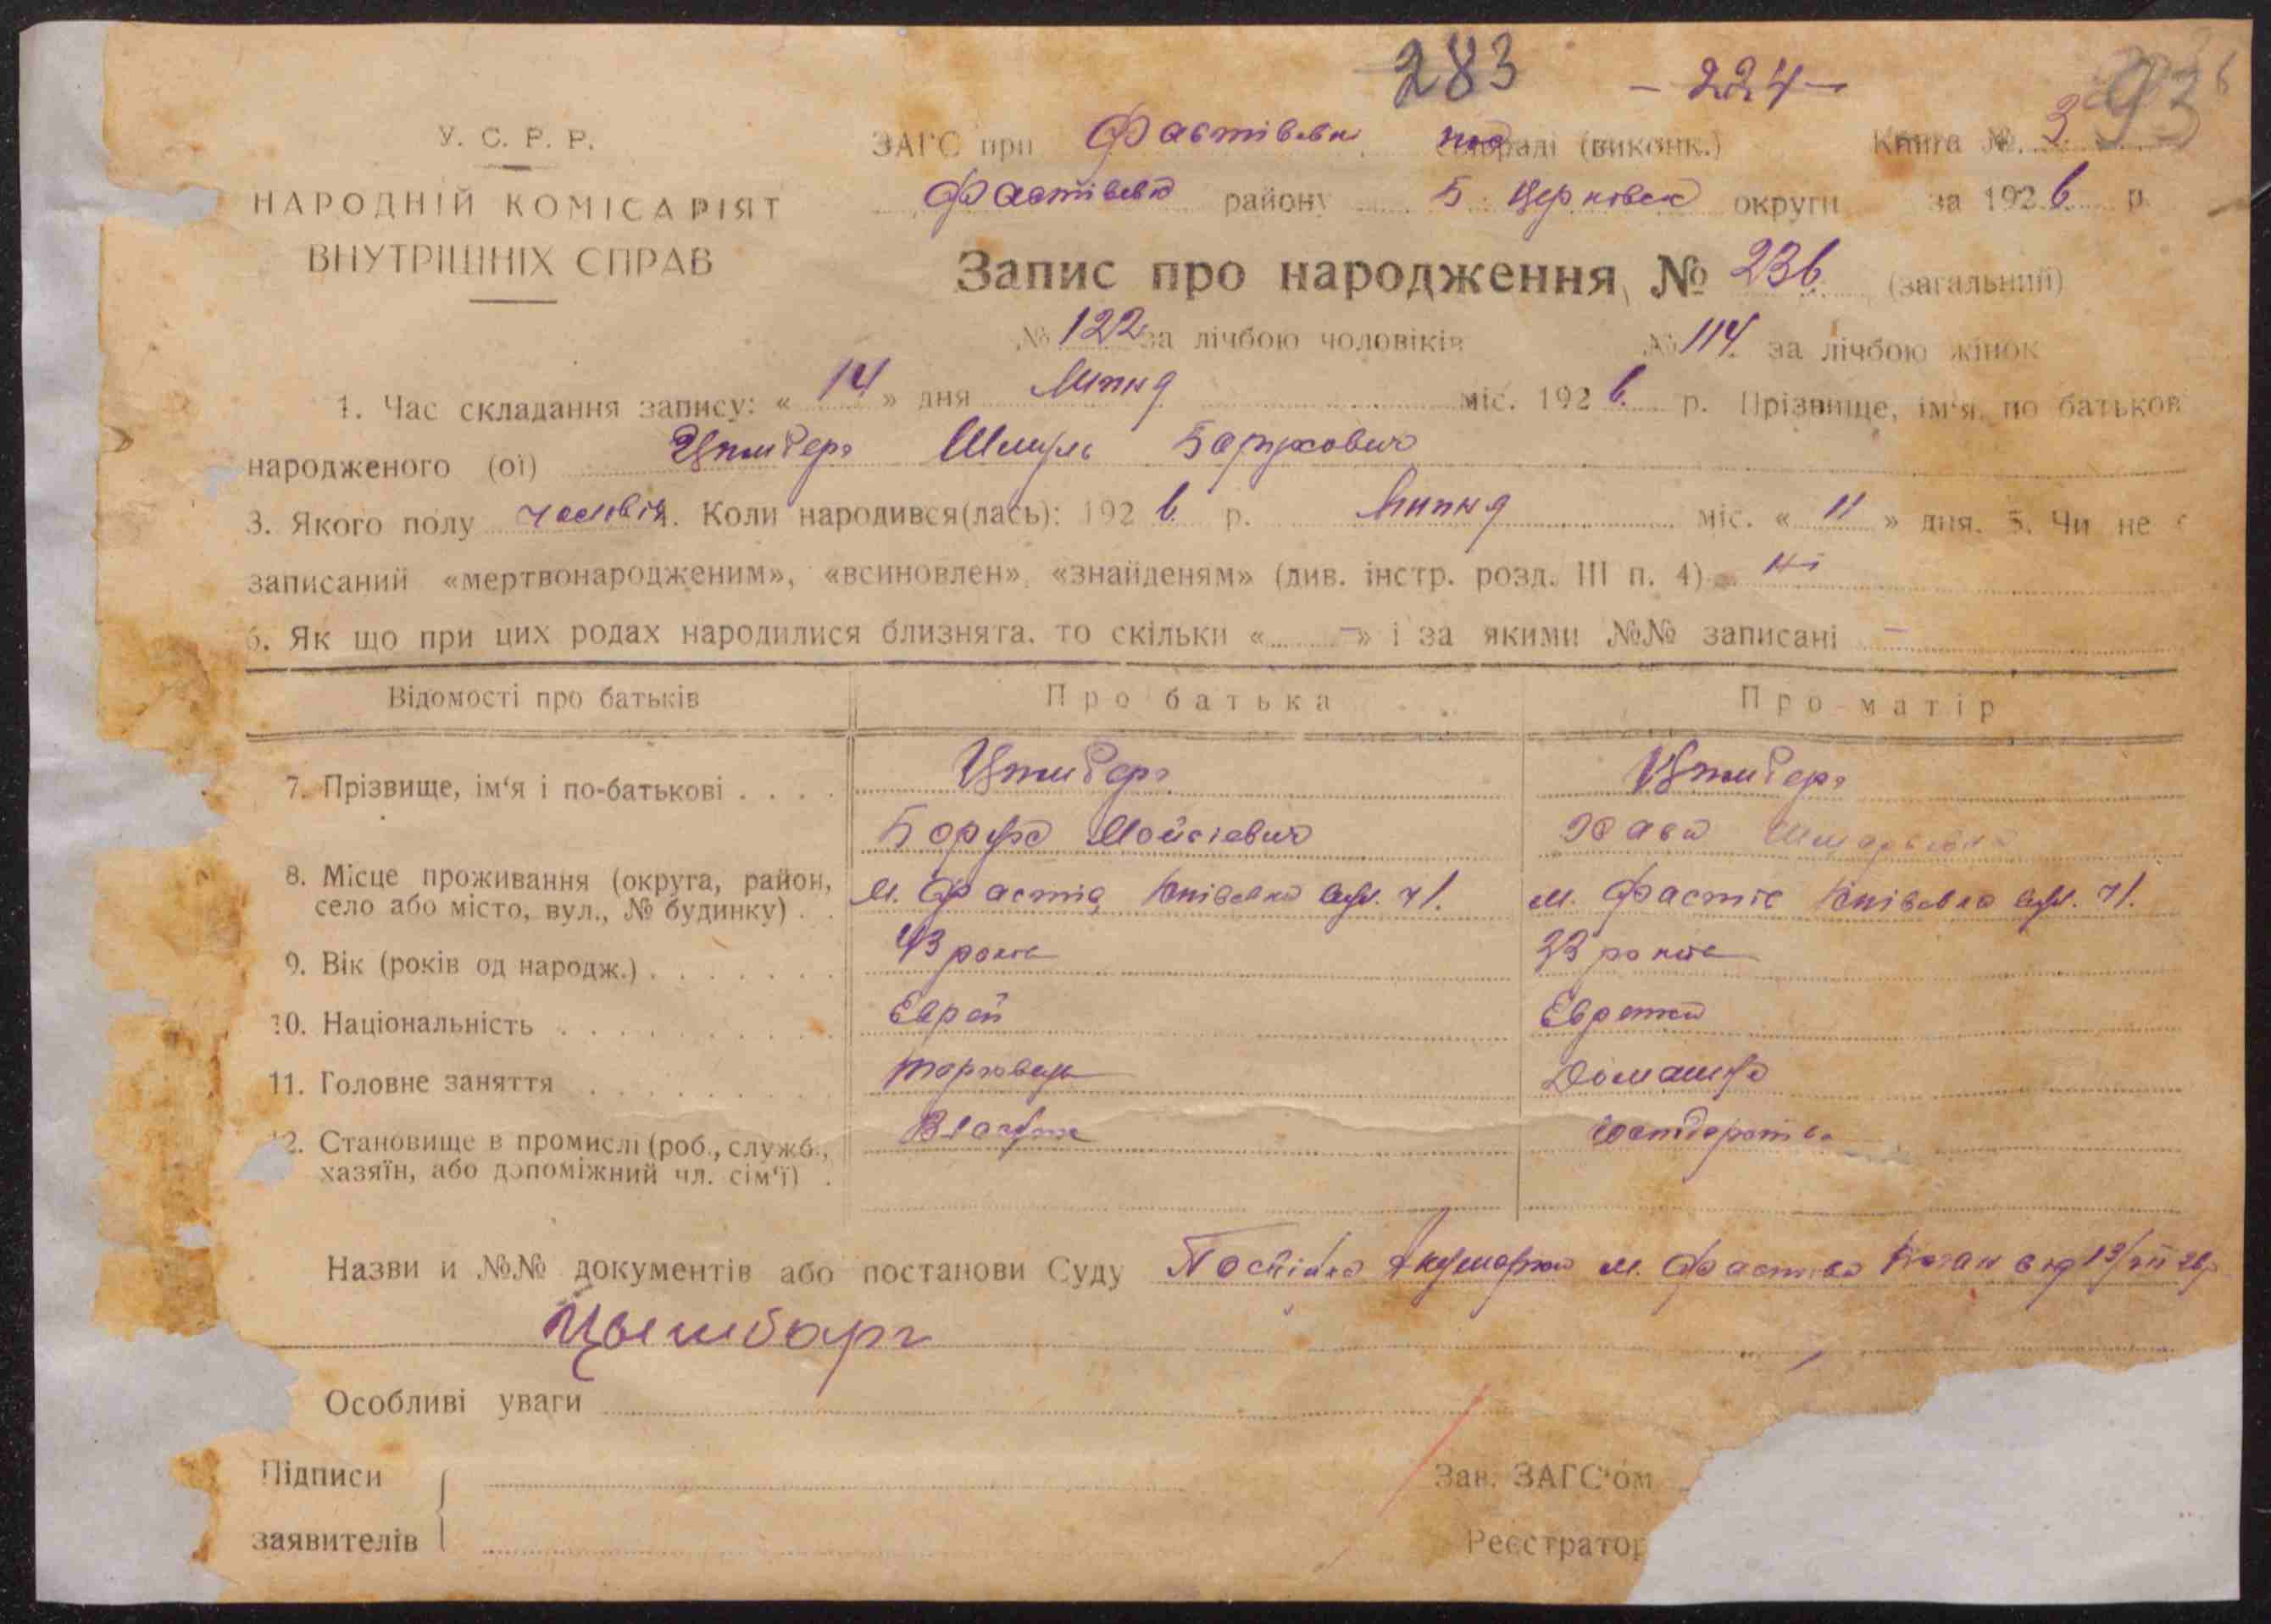 283 - 224 - 93
У. С. Р. Р.
ЗАГС при Фастівськ. раді (виконк.) Книга №. 3.
НАРОДНІЙ КОМІСАРІЯТ
Фастівськ району Б. Церківськ округи за 1926 р.
ВНУТРІШНІХ СПРАВ
Запис про народження, № 236. (загальний)
№ 122 за лічбою чоловіків № 114. за лічбою жінок
1. Час складання запису: « 14 » дня Липня міс. 1926. р. Прізвище, ім'я, по батьков
народженого (ої) Шмуль Борухович
3. Якого полу чоловік 4. Коли народився(лась): 1926. р. Липня міс. « 11 » дня. 5. Чи не є
записаний «мертвонародженим», «всиновлен», «знайденям» (див. інстр. розд. III п. 4) ні
6. Як що при цих родах народилися близнята, то скільки « – » і за якими №№ записані –
Відомості про батьків Про батька Про матір
7. Прізвище, ім'я і по-батькові . . . .
Борух Мойсієвич Хава
8. Місце проживання (округа, район,
село або місто, вул., № будинку) . . м. Фастів вул. ч 1. м. Фастів вул. ч 1.
9. Вік (років од народж.) . . . . . . . 43 років 33 років
10. Національність . . . . . . . . . Еврей Еврейка
11. Головне заняття . . . . . . . . . торговець Домашнє
12. Становище в промислі (роб., служб., Власник господарство
хазяїн, або допоміжний чл. сім'ї) .
Назви и №№ документів або постанови Суду Посвідка Акушерки м. Фастова Коган від 13/VII 26р
Цымбарг
Особливі уваги
Підписи
Зав. ЗАГС'ом
заявителів
Реєстратор